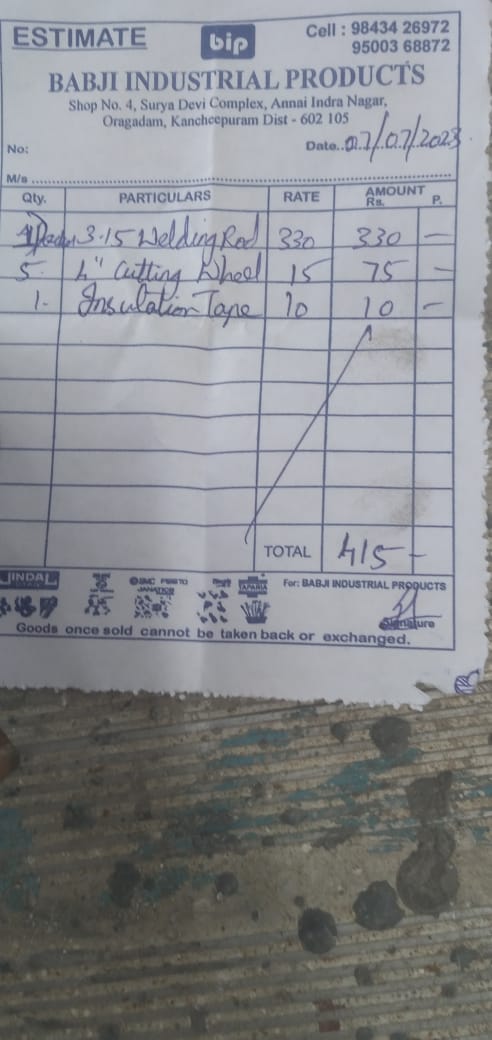 ESTIMATE
bip
Cell : 98434 26972
95003 68872
BABJI INDUSTRIAL PRODUCTS
Shop No. 4, Surya Devi Complex, Annai Indra Nagar,
Oragadam, Kancheepuram Dist - 602 105
No:
Date..07/07/2023
M/s
Qty. PARTICULARS RATE AMOUNT Rs. P.
3.15 Welding Rod 330 330 —
5. 4" Cutting Wheel 15 75 —
1. Insulation Tape 10 10 —
TOTAL 415 —
JINDAL
TAPARIA
For: BABJI INDUSTRIAL PRODUCTS
Signature
Goods once sold cannot be taken back or exchanged.